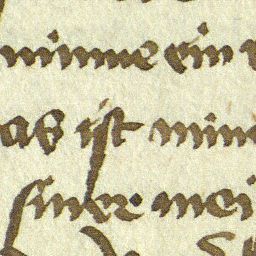 minne ein
as ist min
siner mei